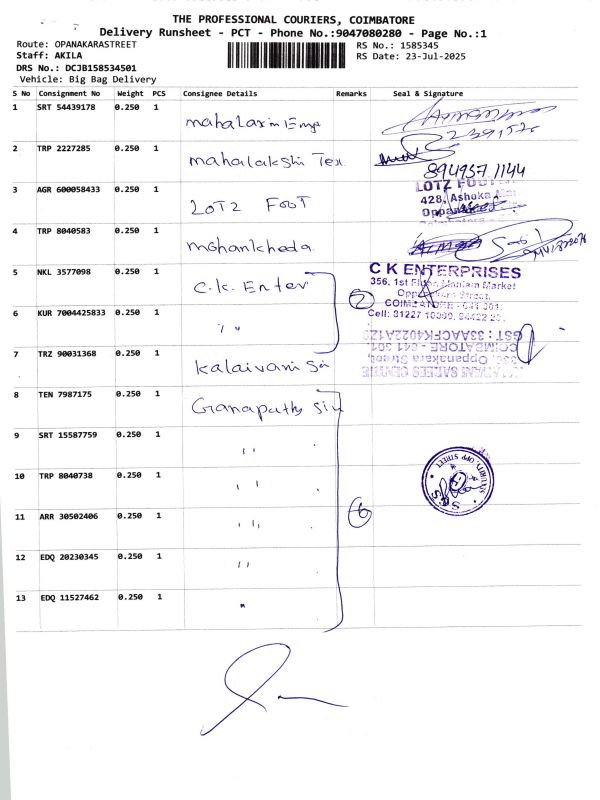 THE PROFESSIONAL COURIERS, COIMBATORE
Delivery Runsheet - PCT - Phone No.:9047080280 - Page No.:1
Route: OPANAKARASTREET
RS No.: 1585345
Staff: AKILA
RS Date: 23-Jul-2025
DRS No.: DCJB158534501
Vehicle: Big Bag Delivery
S No Consignment No Weight PCS Consignee Details Remarks Seal & Signature
1 SRT 54439178 0.250 1 mahalaxmi Enp
2 TRP 2227285 0.250 1 mahalakshi Tex
8949571144
3 AGR 600058433 0.250 1 LOTZ FOOT
LOTZ FOOT
428, Ashoka
Oppanakara
4 TRP 8040583 0.250 1 mohankheda
5 NKL 3577098 0.250 1 C.K. Enter
2
C K ENTERPRISES
356, 1st Floor, Maniam Market
Oppanakara Street,
COIMBATORE - 641 001.
6 KUR 7004425833 0.250 1 "
7 TRZ 90031368 0.250 1 kalaivani Si
COIMBATORE - 641 001
Oppanakara Street,
8 TEN 7987175 0.250 1 Ganapathy Sil
9 SRT 15587759 0.250 1 "
10 TRP 8040738 0.250 1 "
11 ARR 30502406 0.250 1 "
6
12 EDQ 20230345 0.250 1 "
13 EDQ 11527462 0.250 1 "